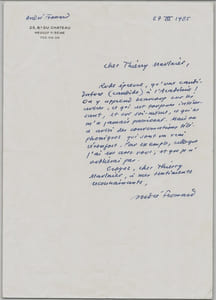 André Frossard
23, Bᵈ DU CHATEAU
NEUILLY S/SEINE
27 III 1985
Cher Thierry Maulnier,
Rude épreuve, qu'une candi-
dature (candide) à l'Académie !
On y apprend beaucoup sur les
autres, ce qui est toujours intéres-
sant, et sur soi-même, ce qui ne
m'a jamais passionné. Mais on
a aussi des conversations télé-
phoniques qui sont un vrai
réconfort. Par exemple, celle que
j'ai eue avec vous, et que je n'
oublierai pas.
Croyez, cher Thierry
Maulnier, à mes sentiments
reconnaissants,
André Frossard